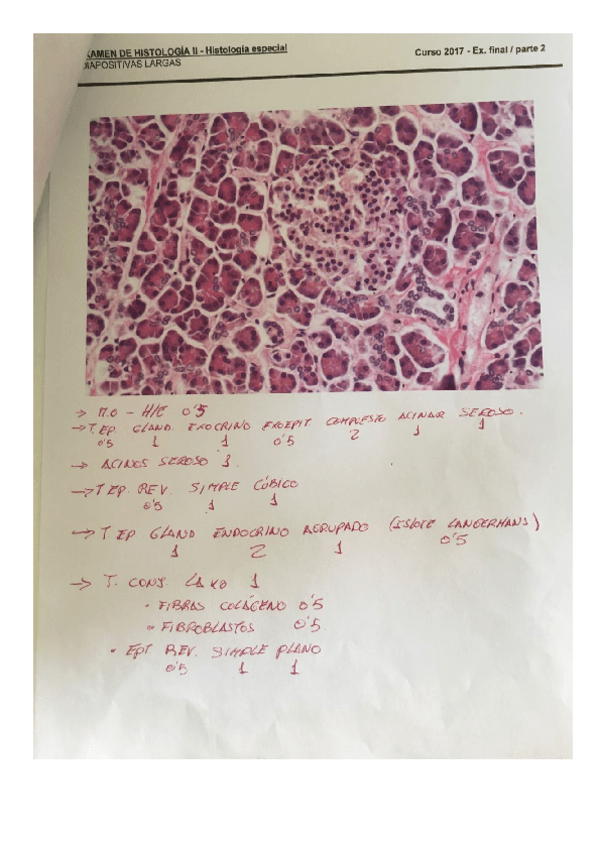 XAMEN DE HISTOLOGÍA II - Histología especial Curso 2017 - Ex. final / parte 2
DIAPOSITIVAS LARGAS
→ M.O - H/E 0'5
→ T. EP. GLAND. EXOCRINO EXOEPIT. COMPUESTO ACINAR SEROSO.
0'5 1 1 0'5 2 1 1
→ ACINOS SEROSO 1.
→ T EP. REV. SIMPLE CÚBICO
0'5 1 1
→ T EP GLAND ENDOCRINO AGRUPADO (ISLOTE LANGERHANS)
1 2 1 0'5
→ T. CONJ. LAXO 1
• FIBRAS COLÁGENO 0'5
• FIBROBLASTOS 0'5
• EPT REV. SIMPLE PLANO
0'5 1 1